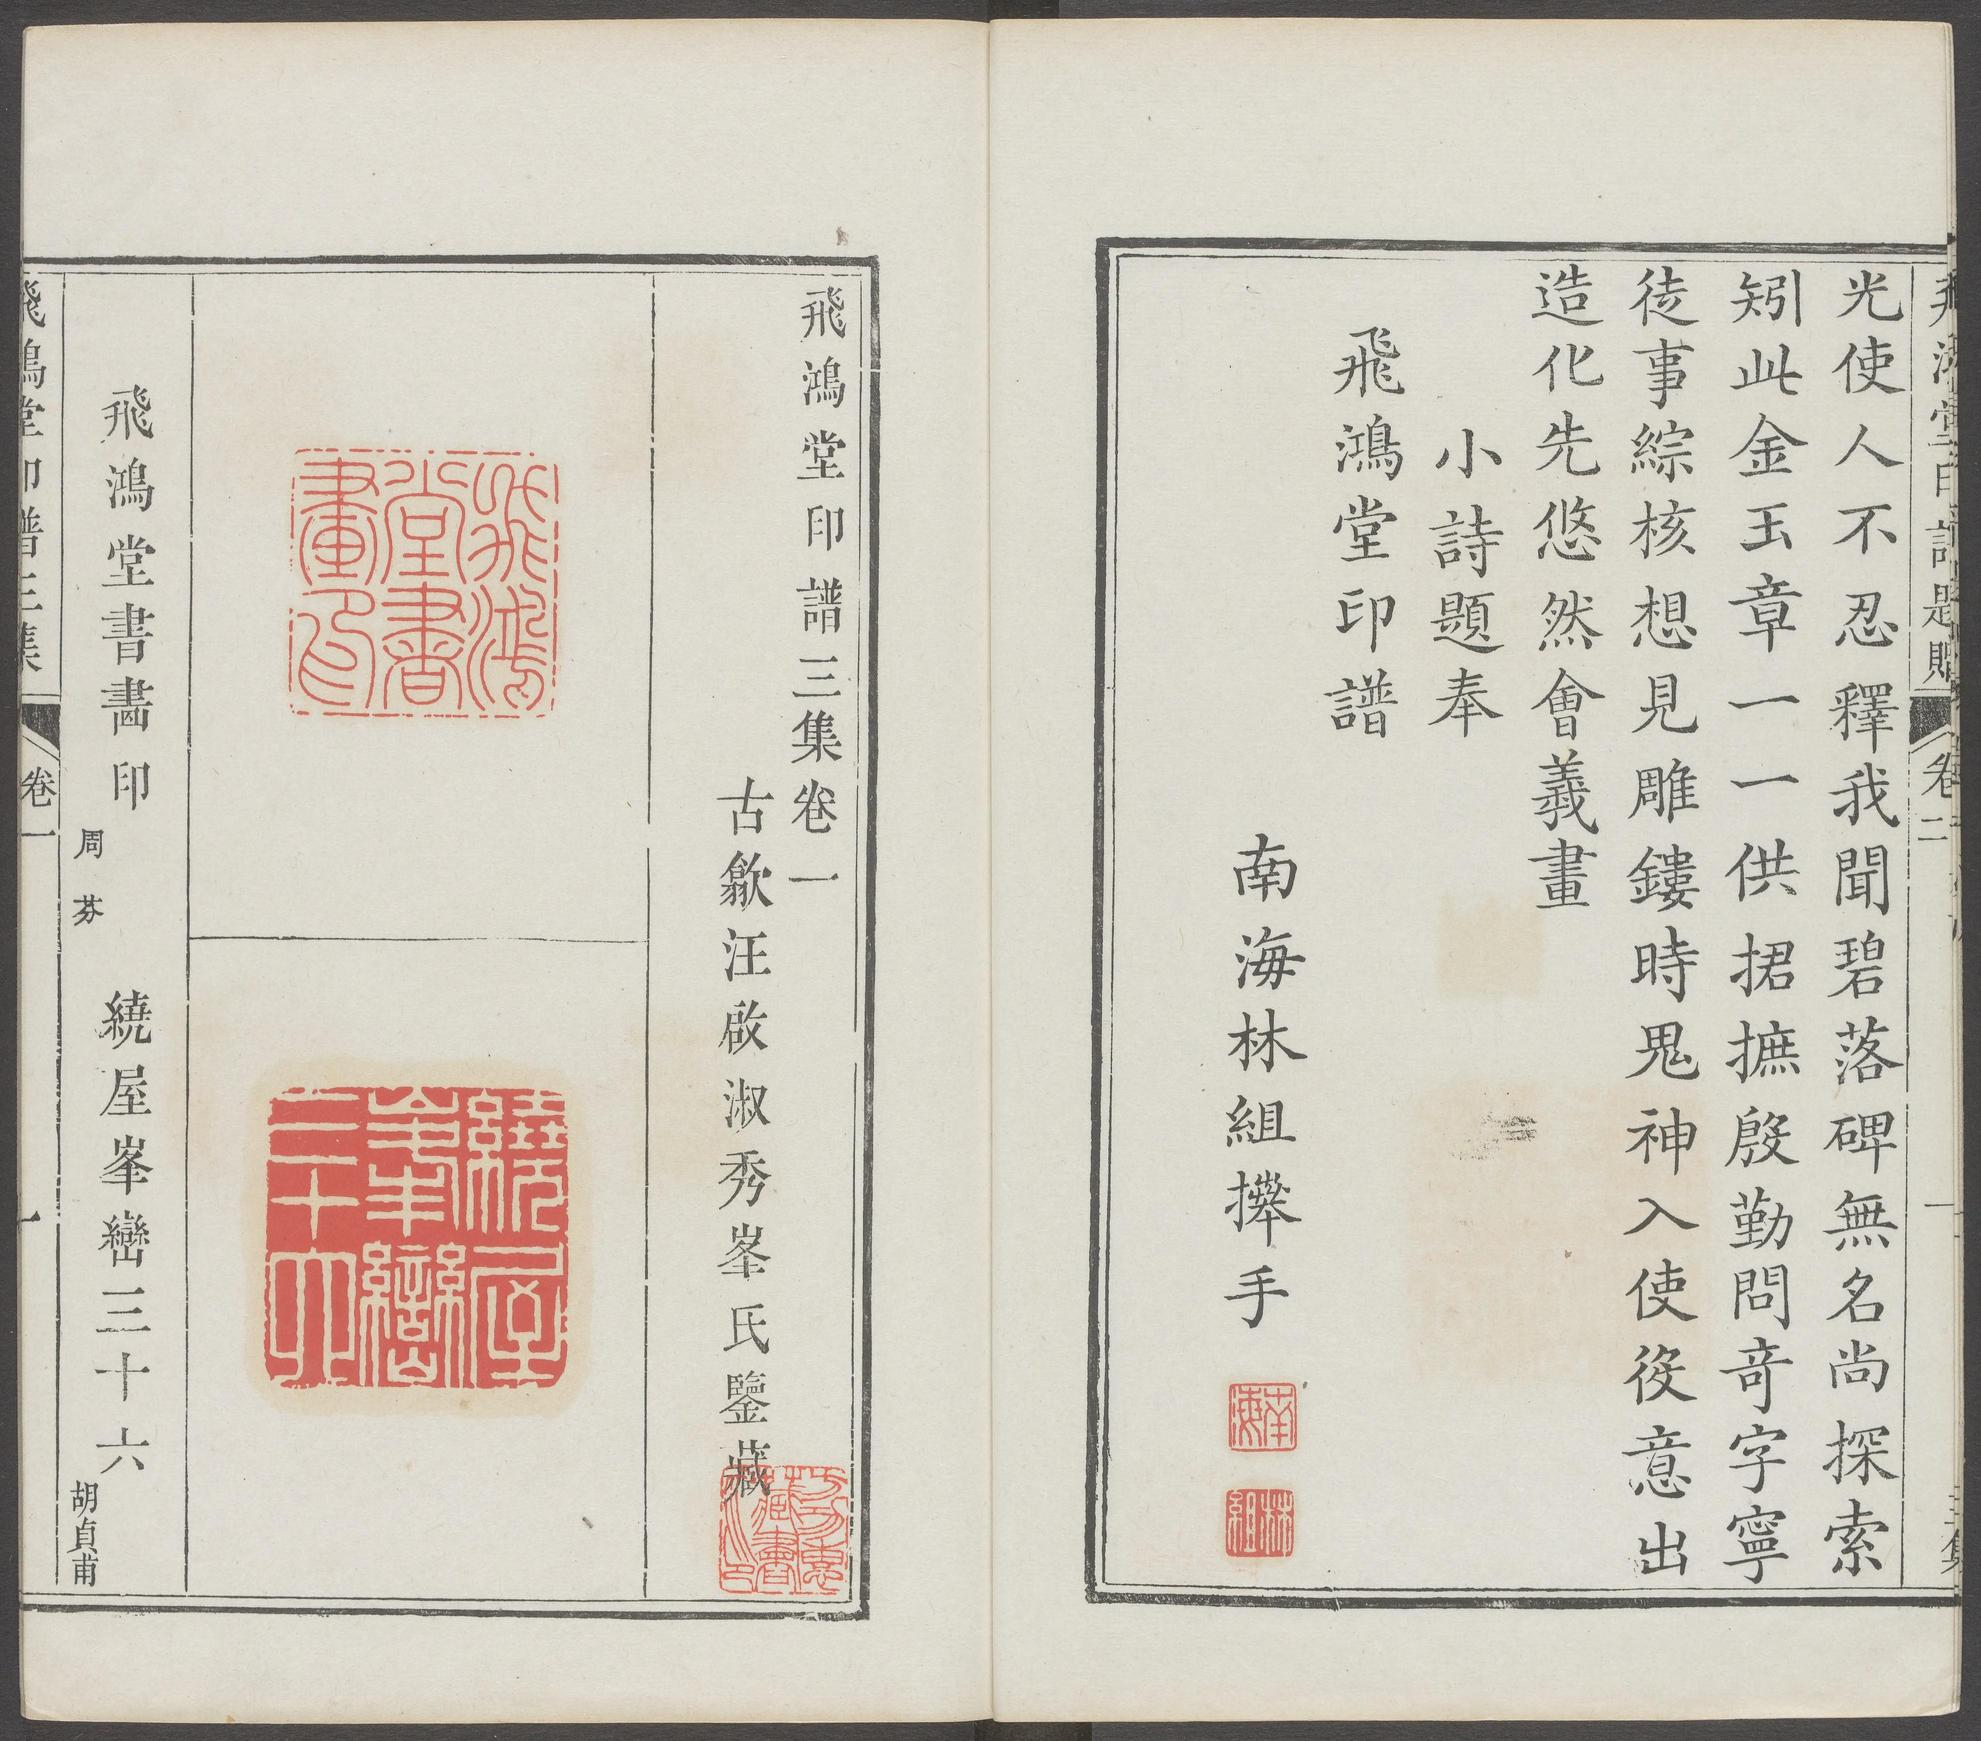 光使人不忍釋我聞碧落碑無名尚探索
矧此金玉章一一供捃摭殷勤問竒字寧
徒事綜核想見雕鏤時鬼神入使役意出
造化先悠然會義畫
小詩題奉
飛鴻堂印譜
南海林組攑手
南海
林組
卷二
一
飛鴻堂印譜三集卷一
古歙汪啟淑秀峯氏鑒藏
飛鴻堂書畫印
繞屋峯巒三十六
飛鴻堂書畫印
周芬
繞屋峯巒三十六
胡貞甫
飛鴻堂印譜三集
卷一
一